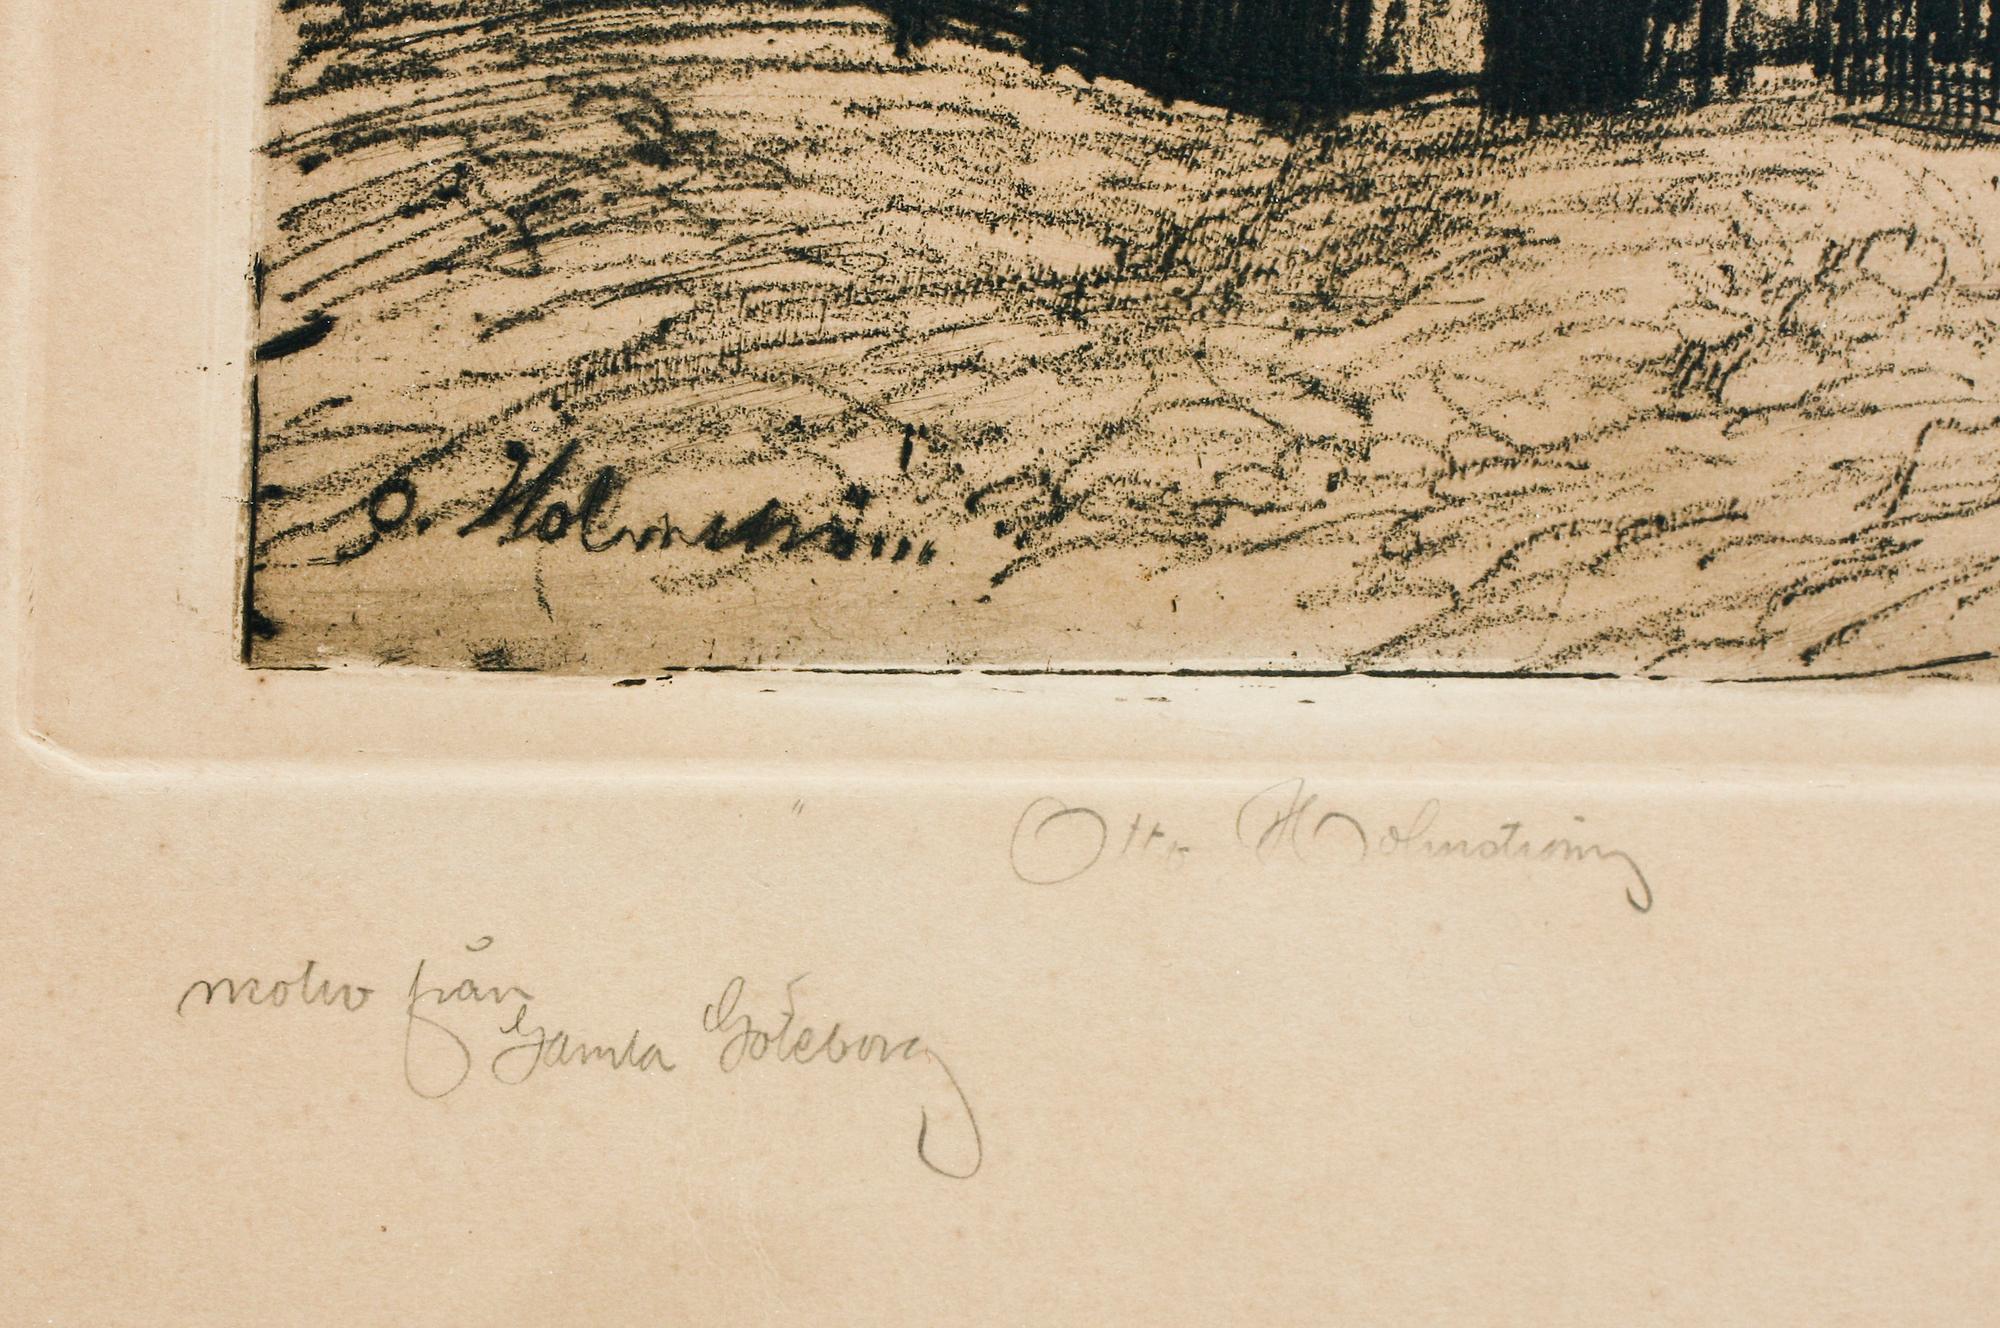 O. Holmström
Otto Holmström
motiv från
Gamla Göteborg